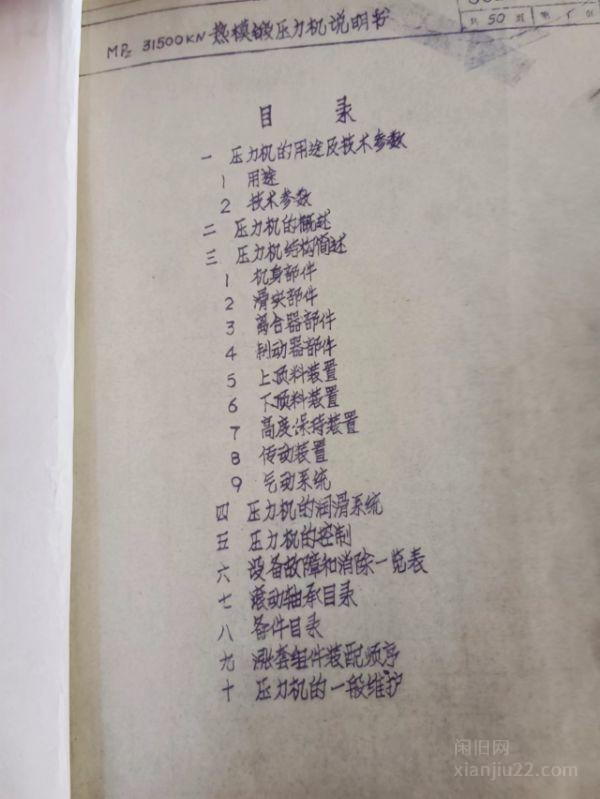 MPz 31500KN 热模锻压力机说明书
共 50 页 第 1 页
目 录
一 压力机的用途及技术参数
1 用途
2 技术参数
二 压力机的概述
三 压力机结构简述
1 机身部件
2 滑块部件
3 离合器部件
4 制动器部件
5 上顶料装置
6 下顶料装置
7 高度保持装置
8 传动装置
9 气动系统
四 压力机的润滑系统
五 压力机的控制
六 设备故障和消除一览表
七 滚动轴承目录
八 备件目录
九 涨套组件装配顺序
十 压力机的一般维护
闲旧网
xianjiu22.com